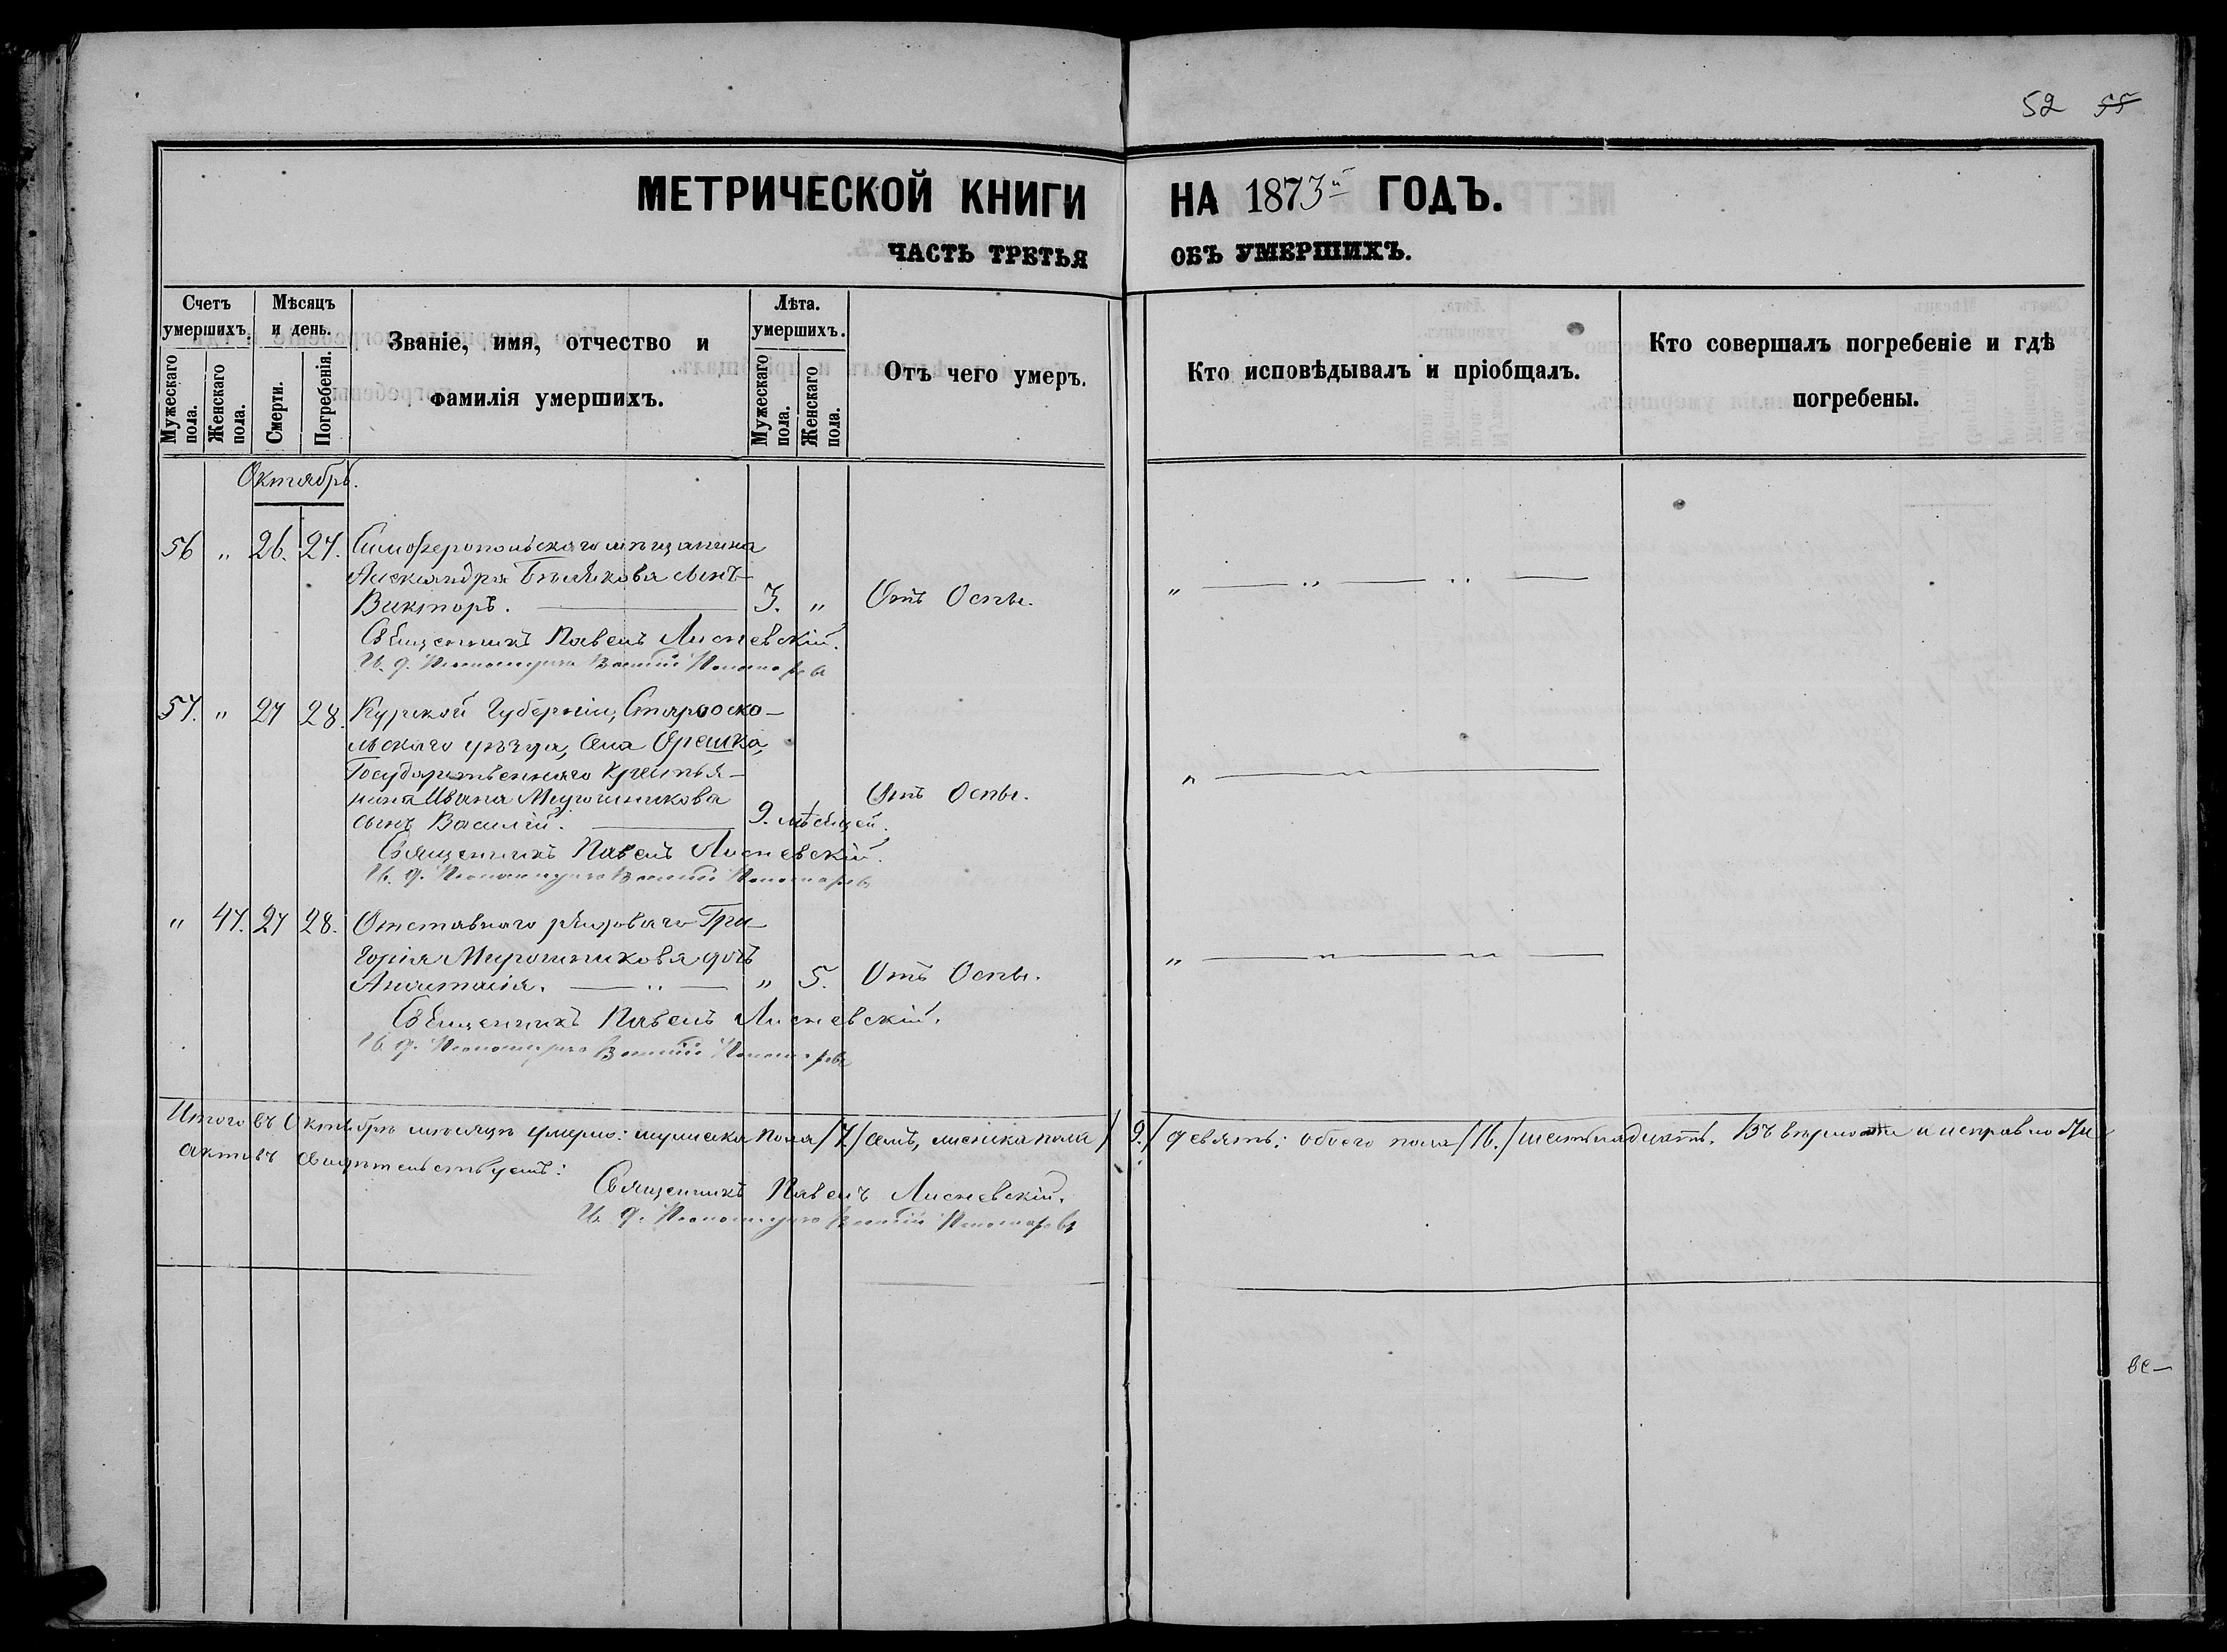 52 55
МЕТРИЧЕСКОЙ КНИГИ НА 1873й ГОДЪ.
ЧАСТЬ ТРЕТЬЯ ОБЪ УМЕРШИХЪ.
Счетъ умершихъ.
Мужескаго пола.
Женскаго пола.
Мѣсяцъ и день.
Смерти.
Погребенія.
Званіе, имя, отчество и
фамилія умершихъ.
Лѣта умершихъ.
Мужескаго пола.
Женскаго пола.
Отъ чего умеръ.
Кто исповѣдывалъ и пріобщалъ.
Кто совершалъ погребеніе и гдѣ
погребены.
Октябрь.
56 " 26. 27. Симферопольскаго мѣщанина
Александра Бѣлякова сынъ
Викторъ. 3. " Отъ Оспы.
Священникъ Павелъ Лисневскій.
И. д. Псаломщика Пономаревъ
57. " 27 28. Курской Губерніи, Старооско-
льскаго уѣзда, села Орешка,
Государственнаго Крестья-
нина Ивана Мирошникова
сынъ Василій. 9. мѣсяцей. Отъ Оспы.
Священникъ Павелъ Лисневскій.
И. д. Псаломщика Пономаревъ
" 47. 27 28. Отставнаго рядоваго Гри-
горія Мирошникова дочь
Анастасія. " 5. Отъ Оспы.
Священникъ Павелъ Лисневскій.
И. д. Псаломщика Пономаревъ
Итого въ Октябрѣ мѣсяцѣ умерло: мужеска пола /7./ семь, женска пола /9./ девять: обоего пола /16./ шестнадцать. Въ вѣрности и исправности
актовъ свидѣтельствуемъ:
Священникъ Павелъ Лисневскій.
И. д. Псаломщика Пономаревъ